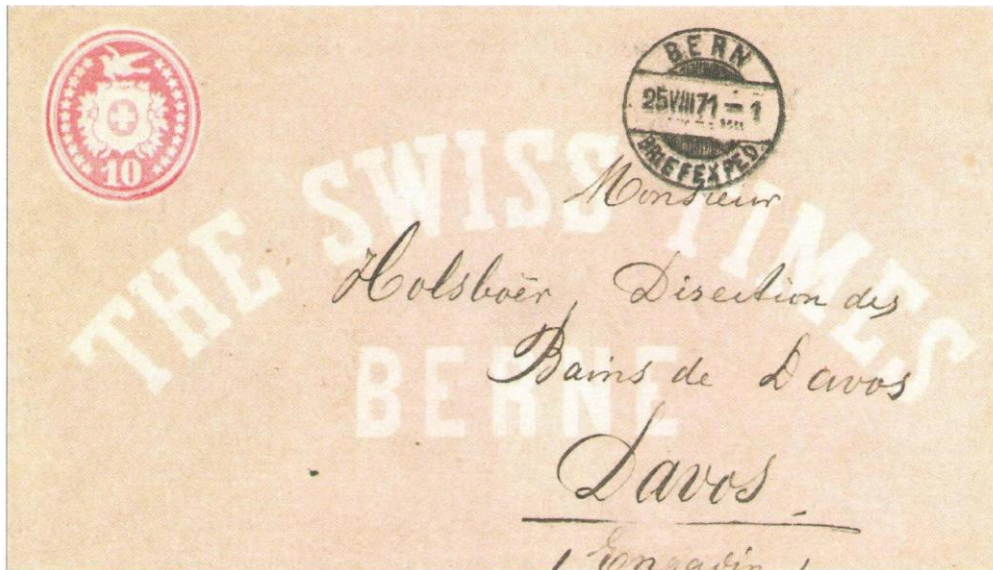 10
BERN
25VIII71-1
BRIEFEXPED.
THE SWISS TIMES
BERNE
Monsieur
Holsboër, Direction des
Bains de Davos
Davos
Engadin